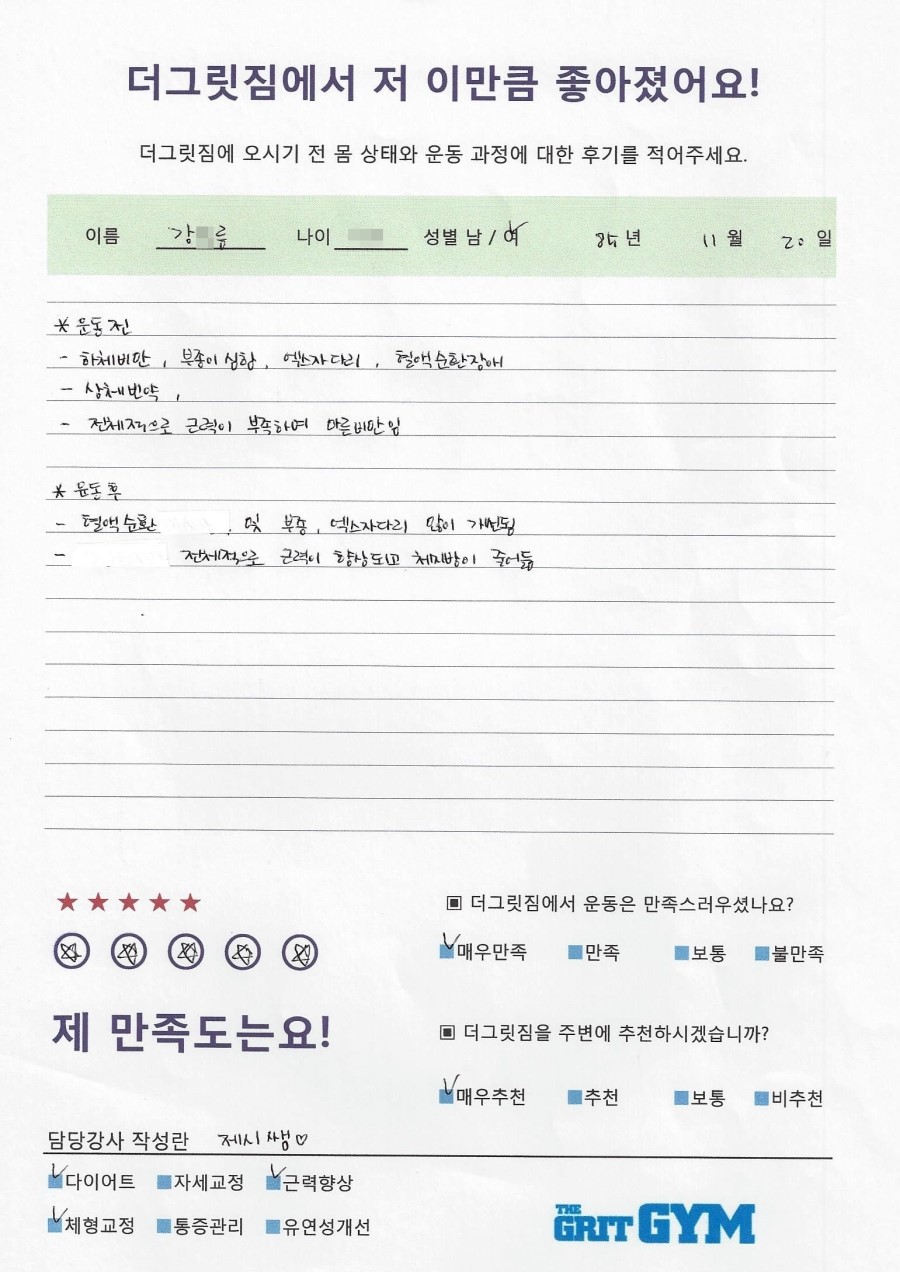 더그릿짐에서 저 이만큼 좋아졌어요!
더그릿짐에 오시기 전 몸 상태와 운동 과정에 대한 후기를 적어주세요.
이름 강 나이 성별 남 / 여 년 11 월 20 일
* 운동 전
- 하체비만, 부종이 심함, 엑스자다리, 혈액순환장애
- 상체빈약,
- 전체적으로 근력이 부족하며 마른비만임
* 운동 후
- 혈액순환, 및 부종, 엑스자다리 많이 개선됨
- 전체적으로 근력이 향상되고 체지방이 줄어듦
★★★★★
▣ 더그릿짐에서 운동은 만족스러우셨나요?
매우만족 만족 보통 불만족
제 만족도는요!
▣ 더그릿짐을 주변에 추천하시겠습니까?
매우추천 추천 보통 비추천
담당강사 작성란 제시쌤♡
다이어트 자세교정 근력향상
체형교정 통증관리 유연성개선
THE GRIT GYM